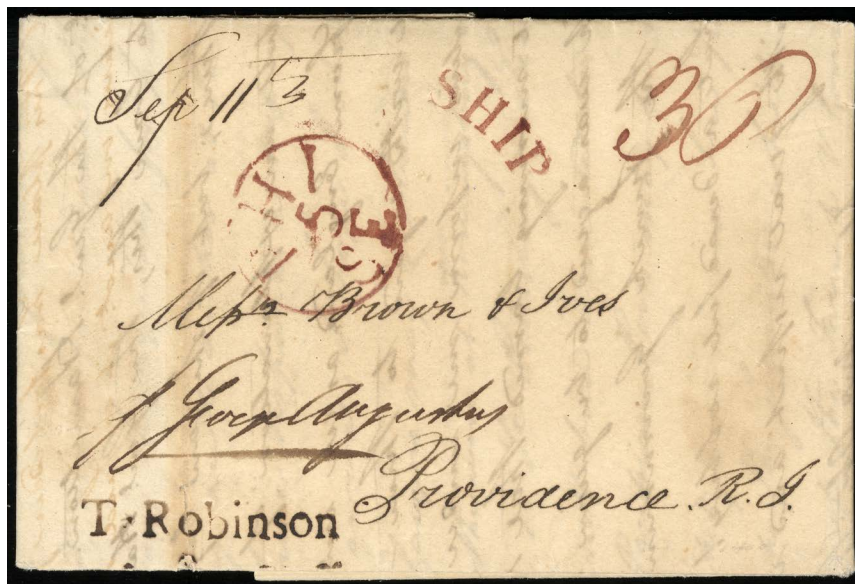 Sep 11
SHIP
30
5 SE
Messrs Brown & Ives
p George Augustus
Providence. R. I.
T. Robinson